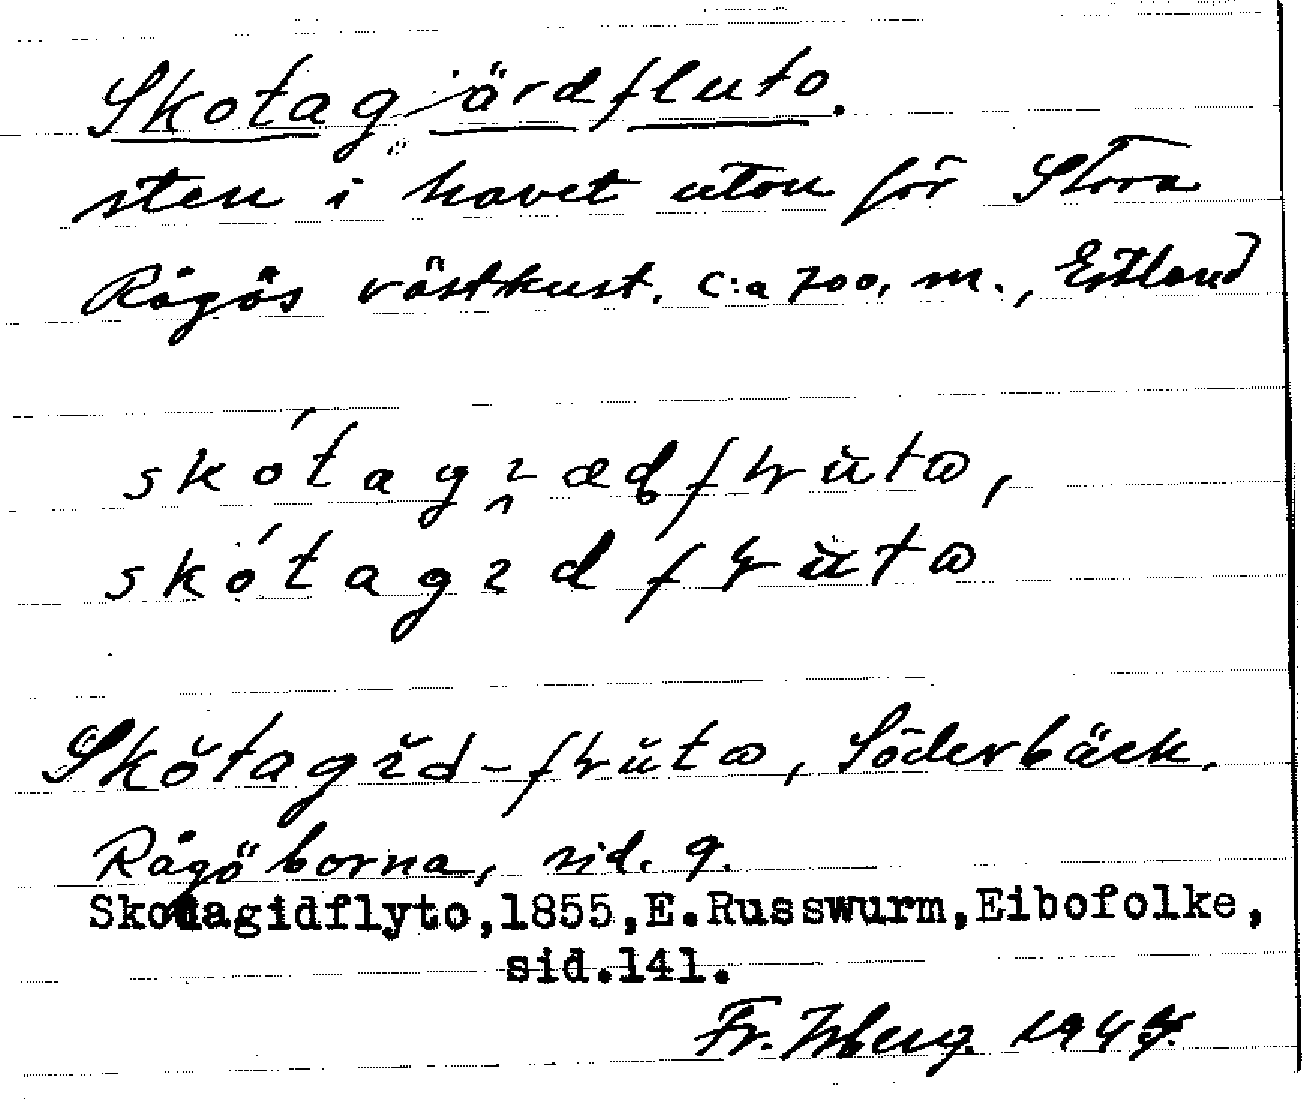 Skotagjärdfluto.
sten i havet utan för Stora
Rågös västkust. c:a 700, m., Estland
skótagɿædfꞎùtɷ,
skótagɿdfꞎùtɷ
Skŏtagɿ̆d-fꞎŭtɷ, Söderbäck.
Rågöborna, sid. 9.
Skotagidflyto,1855,E.Russwurm,Eibofolke,
sid.141.
Fr. Isberg. 1944.